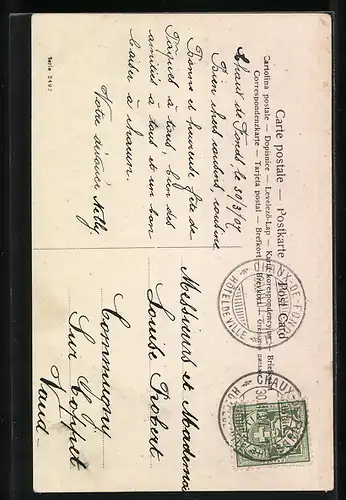 Carte postale — Postkarte — Post Card
Cartolina postale — Dopisnice — Levelező-Lap
Correspondenzkarte — Tarjeta postal — Brefkort
Serie 2497
Chaux de Fonds le 30/3/07
Bien chers cousins, cousine
Bonne et heureuse fête de
Pâques à tous, bien des
amitiés à tous et un bon
baiser à chacun.
Votre dévouée Nelly
Messieurs et Mademoi
Louise Robert
Commugny
Sur
Coppet
Vaud
CHAUX-DE-FONDS
HÔTEL DE VILLE
CHAUX
30